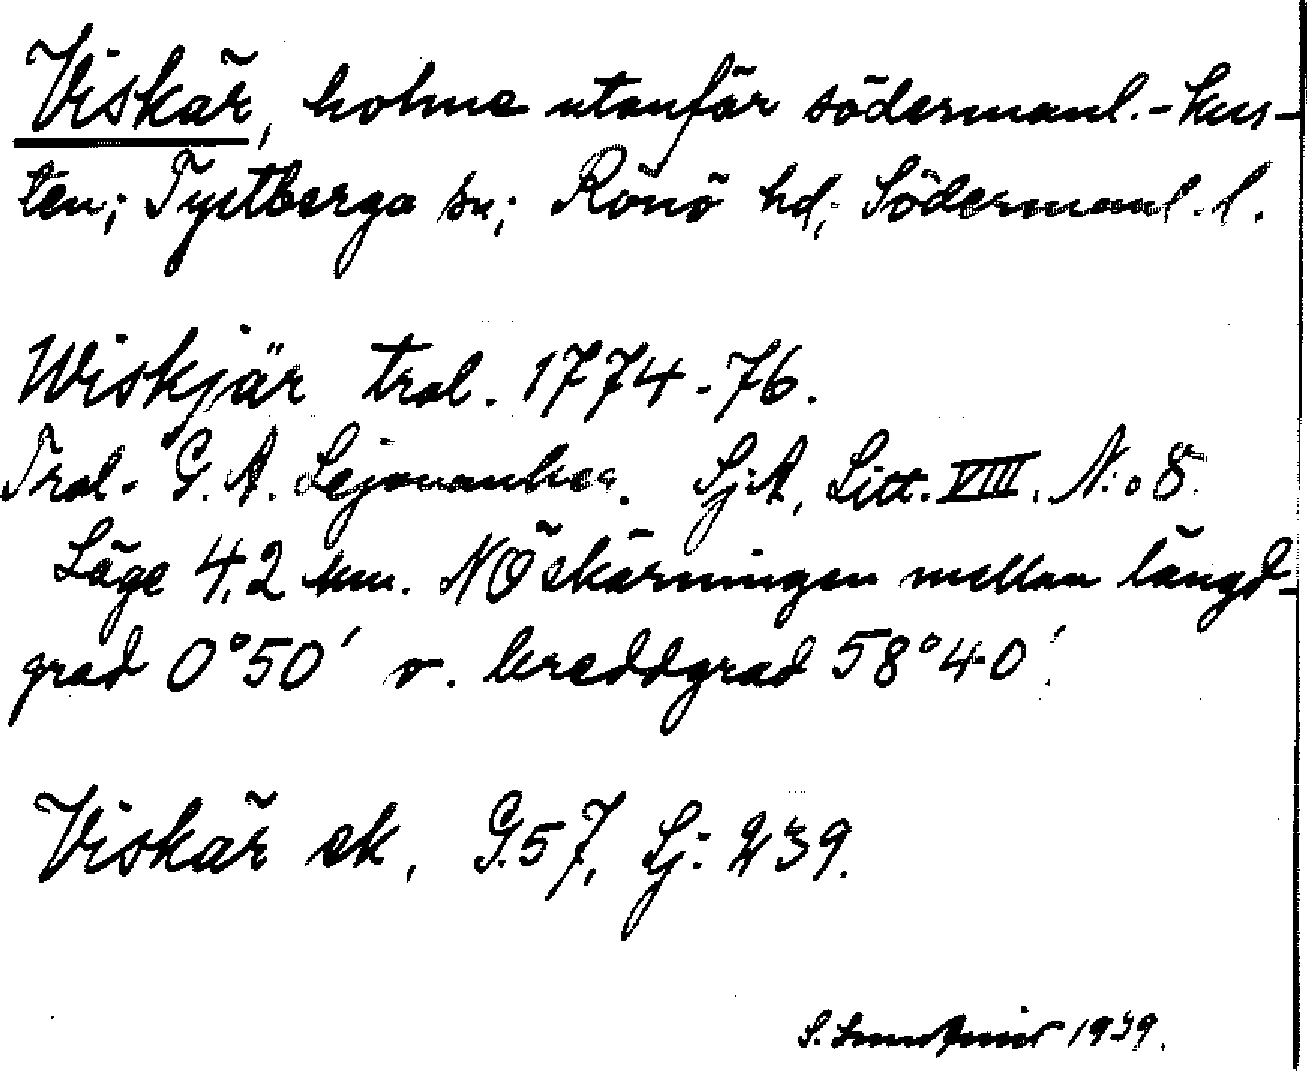 Viskär, holme utanför södermanl.-kus-
ten; Tystberga sn; Rönö hd; Södermanl. l.
Wiskjär trol. 1774-76.
Trol. G. A. Lejonancker. Sj:A, Litt. VIII. N:o 8.
Läge 4,2 km. NÖ skärningen mellan längd-
grad 0°50' o. breddgrad 58°40'.
Viskär ek, G.57, Sj: 239.
S. 1939.